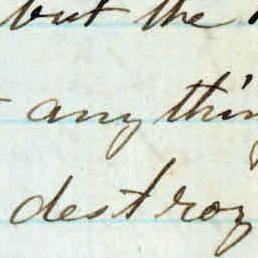 but the
any thin
destroy